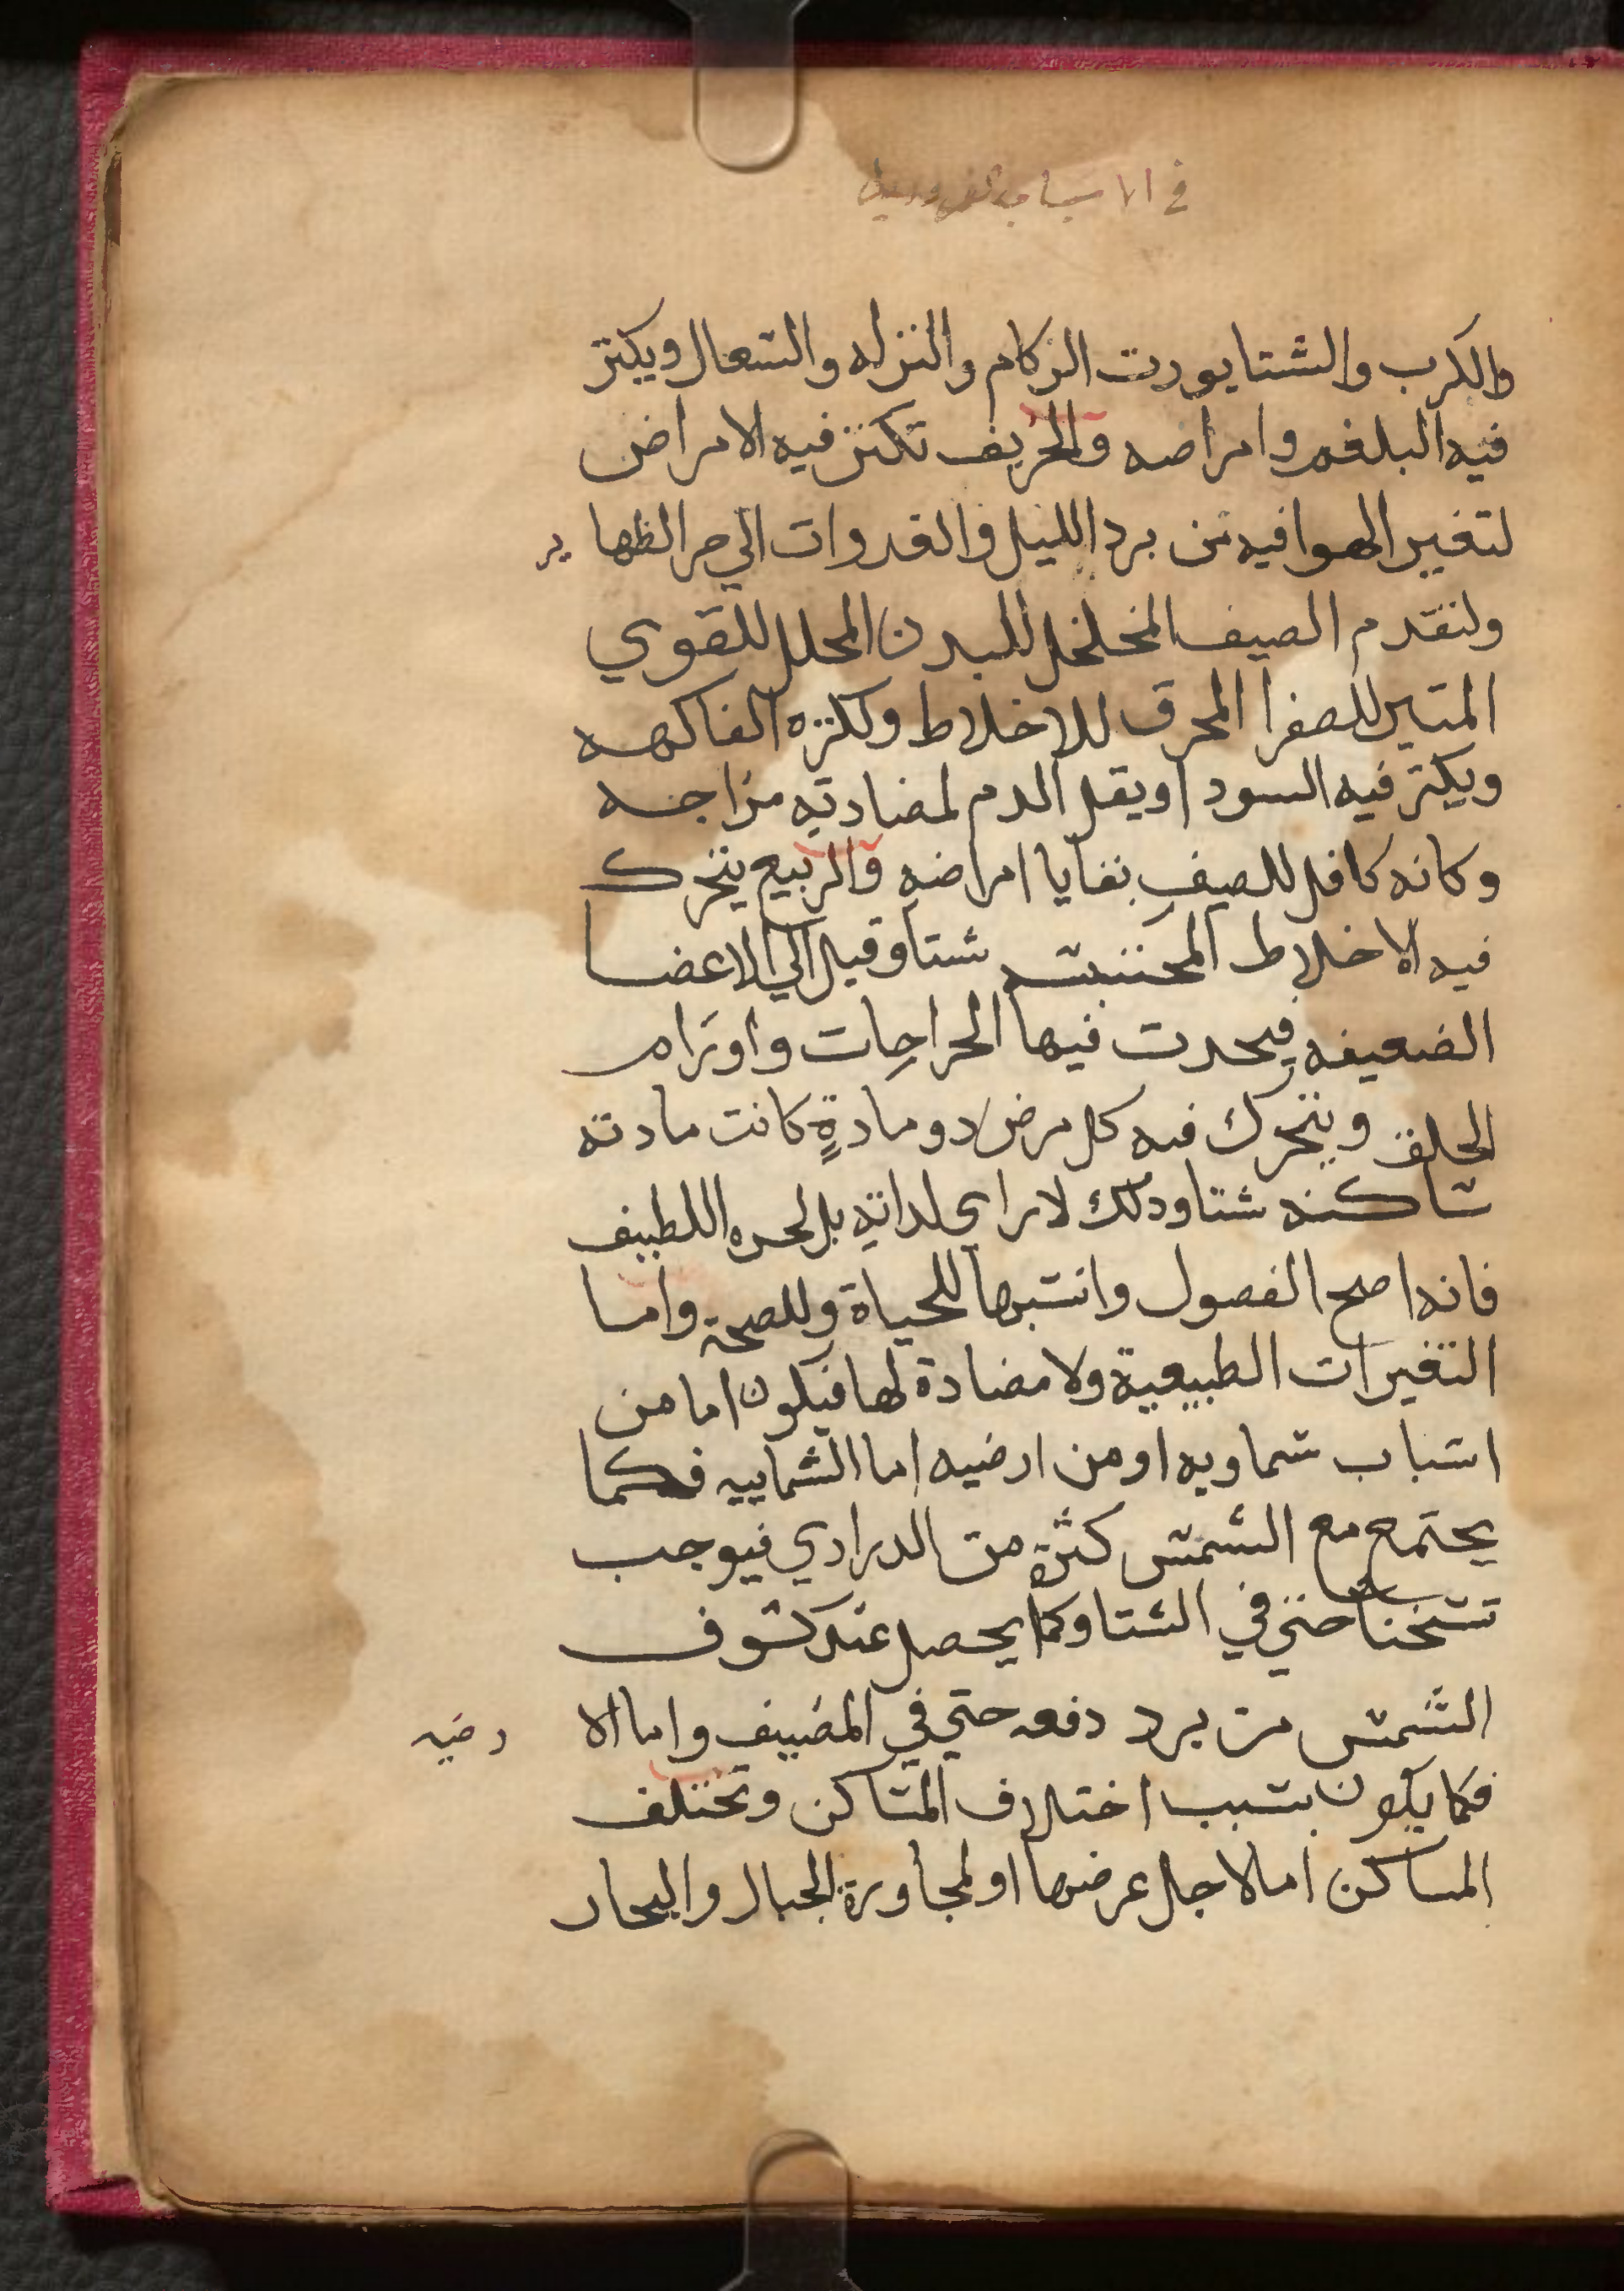 في الاسباب الضروريه
والكرب والشتا يورت الزكام والنزله والسعال ويكتر
فيه البلغم وامراضه والخريف تكتر فيه الامراض
لتغير الهوا فيه من برد الليل والغدوات الي حر الظهاير
ولتقدم الصيف المخلخل للبدن المحلل للقوي
المتير للصفرا المحرق للاخلاط ولكتره الفاكهه
ويكتر فيه السودا ويقل الدم لمضادته مزاجه
وكانه كافل للصيف بقايا امراضه والربيع يتحرك
فيه الاخلاط المحتبسه شتا وقيل الي الاعضا
الضعيفه فيحدت فيها الخراجات واورام
الحلق ويتحرك فيه كل مرض دو مادةٍ كانت مادته
ساكنه شتا ودلك لا براي لداته بل لحره اللطيف
فانه اصح الفصول وانسبها للحياة وللصحة واما
التغيرات الطبيعية ولا مضادة لها فيكون اما من
اسباب سماويه او من ارضيه اما السماييه فكما
يجتمع مع الشمس كثرة من الدراري فيوجب
تسخنا حتي في الشتا وكما يحصل عند كسوف
الشمس من برد دفعه حتي في المصيف واما الارضيه
فكما يكون بسبب اختلاف المساكن وتختلف
المساكن اما لاجل عرضها او لمجاورة الجبال والبحار